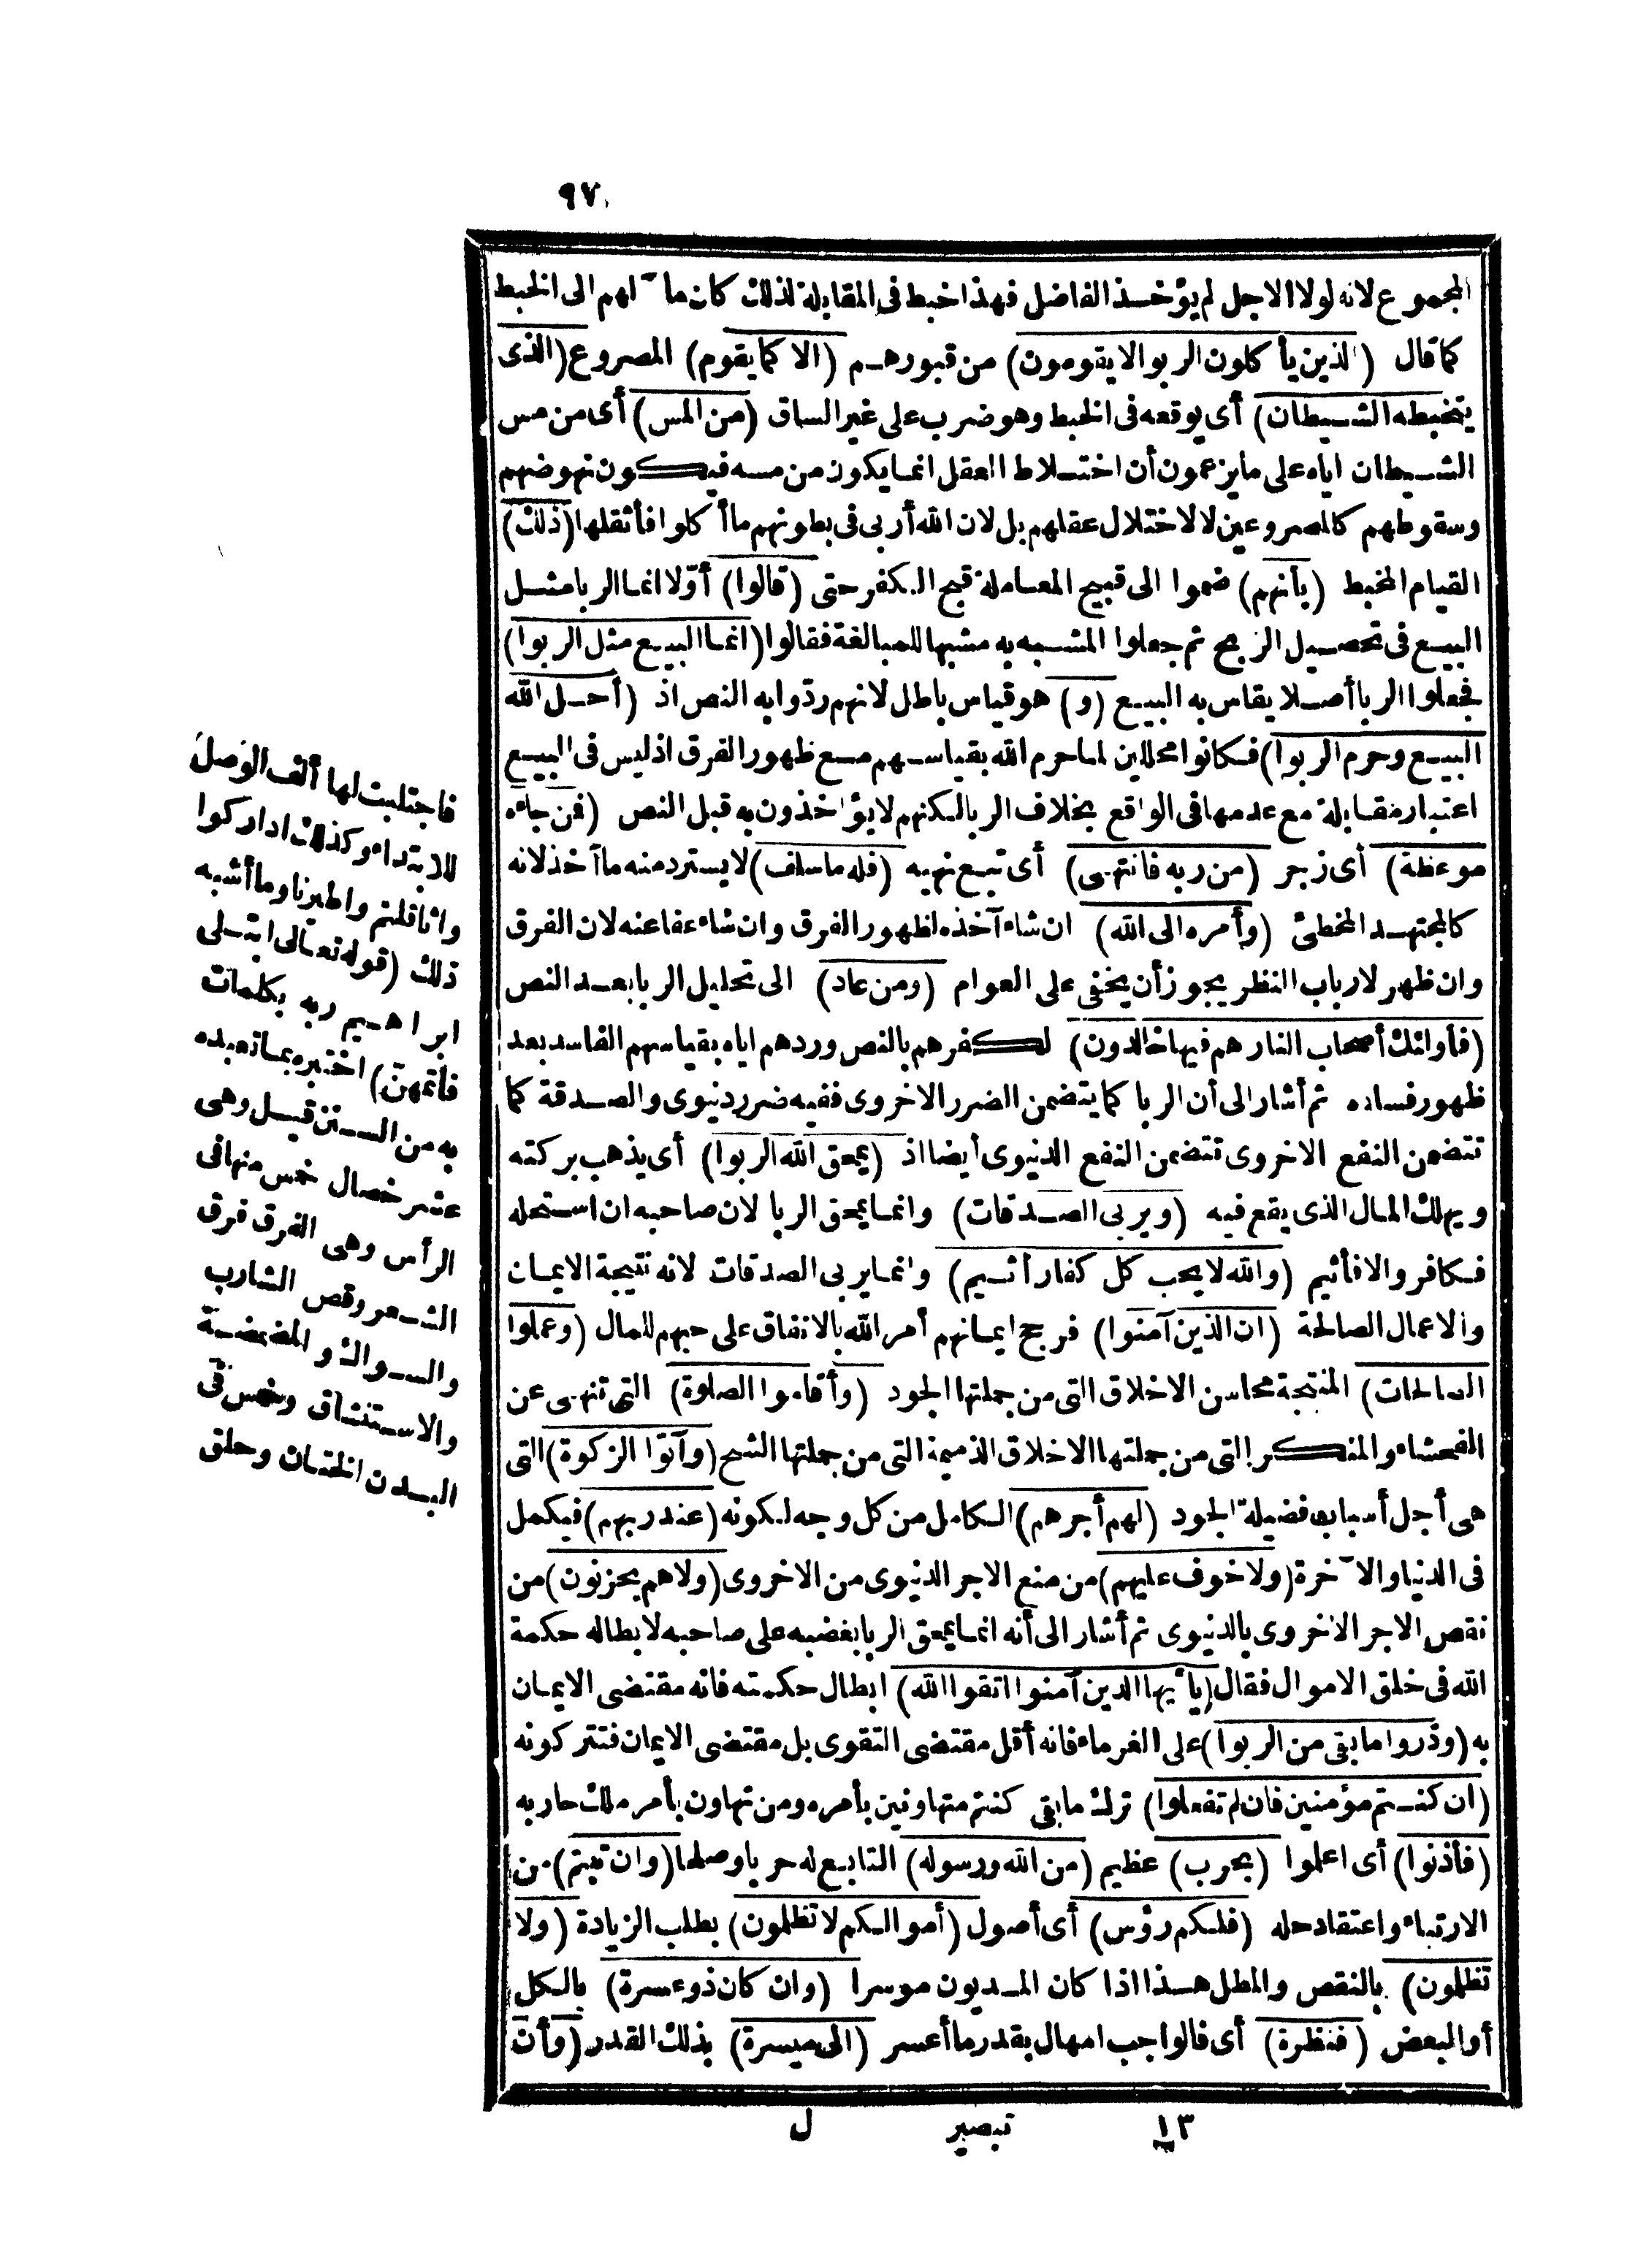 ٩٧
المجموع لانه لولا الاجل لم يؤخذ الفاضل فهذا خبط فى المقابلة لذلك كان مآلهم الى الخبط
كما قال (الذين يأكلون الربوا لا يقومون) من قبورهم (الا كما يقوم) المصروع (الذى
يتخبطه الشيطان) أى يوقعه فى الخبط وهو ضرب على غير الساق (من المس) أى من مس
الشيطان اياه على ما يزعمون أن اختلاط العقل انما يكون من مسه فيكون نهوضهم
وسقوطهم كالمصروعين لا لاختلال عقلهم بل لان الله أربى فى بطونهم ما أكلوا فأثقلها (ذلك)
القيام المخبط (بأنهم) ضموا الى قبيح المعاملة قبح الكفر حتى (قالوا) أوّلا انما الربا مثل
البيع فى تحصيل الربح ثم جعلوا المشبه به مشبها للمبالغة فقالوا (انما البيع مثل الربوا)
فجعلوا الربا أصلا يقاس به البيع (و) هو قياس باطل لانهم ردّوا به النص اذ (أحل الله
البيع وحرم الربوا) فكانوا محللين لما حرم الله بقياسهم مع ظهور الفرق اذ ليس فى البيع
اعتبار مقابلة مع عدمها فى الواقع بخلاف الربا لكنهم لا يؤاخذون به قبل النص (فمن جاءه
موعظة) أى زجر (من ربه فانتهى) أى تبع نهيه (فله ما سلف) لا يسترد منه ما آخذ لانه
كالمجتهد المخطئ (وأمره الى الله) ان شاء آخذه لظهور الفرق وان شاء عفا عنه لان الفرق
وان ظهر لارباب النظر يجوز أن يخفى على العوام (ومن عاد) الى تحليل الربا بعد النص
(فأولئك أصحاب النار هم فيها خالدون) لكفرهم بالنص وردهم اياه بقياسهم الفاسد بعد
ظهور فساده ثم أشار الى أن الربا كما يتضمن الضرر الاخروى ففيه ضرر دنيوى والصدقة كما
تتضمن النفع الاخروى تتضمن النفع الدنيوى أيضا اذ (يمحق الله الربوا) أى يذهب بركته
ويهلك المال الذى يقع فيه (ويربى الصدقات) وانما يمحق الربا لان صاحبه ان استحله
فكافر والا فأثيم (والله لا يحب كل كفار أثيم) وانما يربى الصدقات لانه نتيجة الايمان
والاعمال الصالحة (ان الذين آمنوا) فرجح ايمانهم أمر الله بالانفاق على حبهم للمال (وعملوا
الصالحات) المنتجة محاسن الاخلاق التى من جملتها الجود (وأقاموا الصلوة) التى تنهى عن
الفحشاء والمنكر التى من جملتها الاخلاق الذميمة التى من جملتها الشح (وآتوا الزكوة) التى
هى أجل أسباب فضيلة الجود (لهم أجرهم) الكامل من كل وجه لكونه (عند ربهم) فيكمل
فى الدنيا والآخرة (ولا خوف عليهم) من منع الاجر الدنيوى من الاخروى (ولا هم يحزنون) من
نقص الاجر الاخروى بالدنيوى ثم أشار الى أنه انما يمحق الربا بغضبه على صاحبه لابطاله حكمة
الله فى خلق الاموال فقال (يأيها الذين آمنوا اتقوا الله) ابطال حكمته فانه مقتضى الايمان
به (وذروا ما بقى من الربوا) على الغرماء فانه أقل مقتضى التقوى بل مقتضى الايمان فتتركونه
(ان كنتم مؤمنين فان لم تفعلوا) ترك ما بقى كنتم متهاونين بأمره ومن تهاون بأمر ملك حاربه
(فأذنوا) أى اعلموا (بحرب) عظيم (من الله ورسوله) التابع له حربا وصلحا (وان تبتم) من
الارتباء واعتقاد حله (فلكم رؤس) أى أصول (أموالكم لا تظلمون) بطلب الزيادة (ولا
تظلمون) بالنقص والمطل هذا اذا كان المديون موسرا (وان كان ذو عسرة) بالكل
أو البعض (فنظرة) أى فالواجب امهال بقدر ما أعسر (الى ميسرة) بذلك القدر (وأن
١٣ تبصير ل
فاجتلبت لها ألف الوصل
للابتداء وكذلك اداركوا
واثاقلتم واطيرنا وما أشبه
ذلك (قوله تعالى ابتلى
ابراهيم ربه بكلمات
فأتمهنّ) اختبره بما تعبده
به من السنن قيل وهى
عشر خصال خمس منها فى
الرأس وهى الفرق فرق
الشعر وقص الشارب
والسواك والمضمضة
والاستنشاق وخمس فى
البدن الختان وحلق